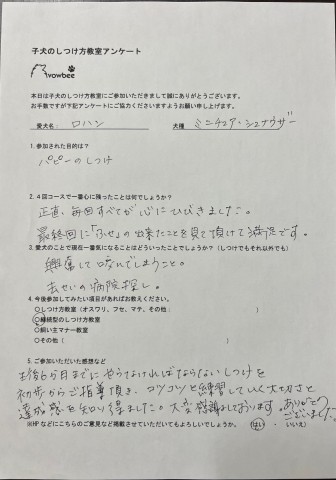 子犬のしつけ方教室アンケート
vowbee
本日は子犬のしつけ方教室にご参加いただきまして誠にありがとうございます。
お手数ですが下記アンケートにご協力くださいますようお願い申し上げます。
愛犬名: ロハン 犬種 ミニチュア・シュナウザー
1. 参加された目的は?
パピーのしつけ
2. 4回コースで一番心に残ったことは何でしょうか?
正直、毎回すべてが心にひびきました。
最終回に「ふせ」の出来たことを見て頂けて満足です。
3. 愛犬のことで現在一番気になることはどういったことでしょうか?(しつけでもそれ以外でも)
興奮して咬んでしまうこと。
去せいの病院探し。
4. 今後参加してみたい項目があればお教えください。
○しつけ方教室(オスワリ、フセ、マテ、その他: )
○継続型のしつけ方教室
○飼い主マナー教室
○その他( )
5. ご参加いただいた感想など
生後6か月までにやらなければならないしつけを
初歩からご指導頂き、コツコツと練習していく大切さと
達成感を知り得ました。大変感謝しております。ありがとうございました。
※HPなどにこちらのご意見など掲載させていただいてもよろしいでしょうか。 (はい ・ いいえ)